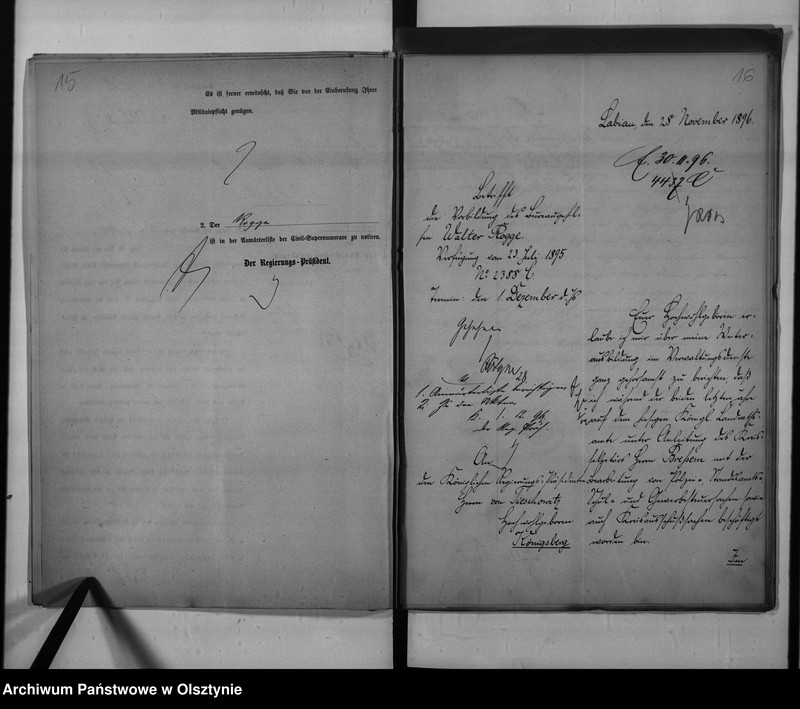 15
Es ist ferner erwünscht, daß Sie vor der Einberufung Ihrer
Militairpflicht genügen.
2. Der Rogge
ist in der Anwärterliste der Civil-Supernumerare zu notiren.
Der Regierungs-Präsident.
16
Labiau, den 28 November 1896.
E. 30.11.96.
4437 C
Betrifft
die Vorbildung des Bureaugehil-
fen Walter Rogge.
Verfügung vom 23 Juli 1895
No 2388 C
Termin: den 1. Dezember d. Js
Gesehen
1. Anwärterliste berichtigen
2. Zu den Akten
K. 1. 12. 96
Der Reg. Präs.
An
den Königlichen Regierungs-Präsidenten
Herrn von Tieschowitz
Hochwohlgeboren
Königsberg
Euer Hochwohlgeboren er-
laube ich mir über meine Weiter-
ausbildung im Verwaltungsdienste
ganz gehorsamst zu berichten, daß
ich während der beiden letzten Jahre
auf dem hiesigen Königl. Landraths-
amte unter Anleitung des Kreis-
sekretärs Herrn Bressem mit der
Bearbeitung von Polizei- Standesamts-
Schul- und Gewerbesteuersachen sowie
auch Kreisausschußsachen beschäftigt
worden bin.
Im
Archiwum Państwowe w Olsztynie